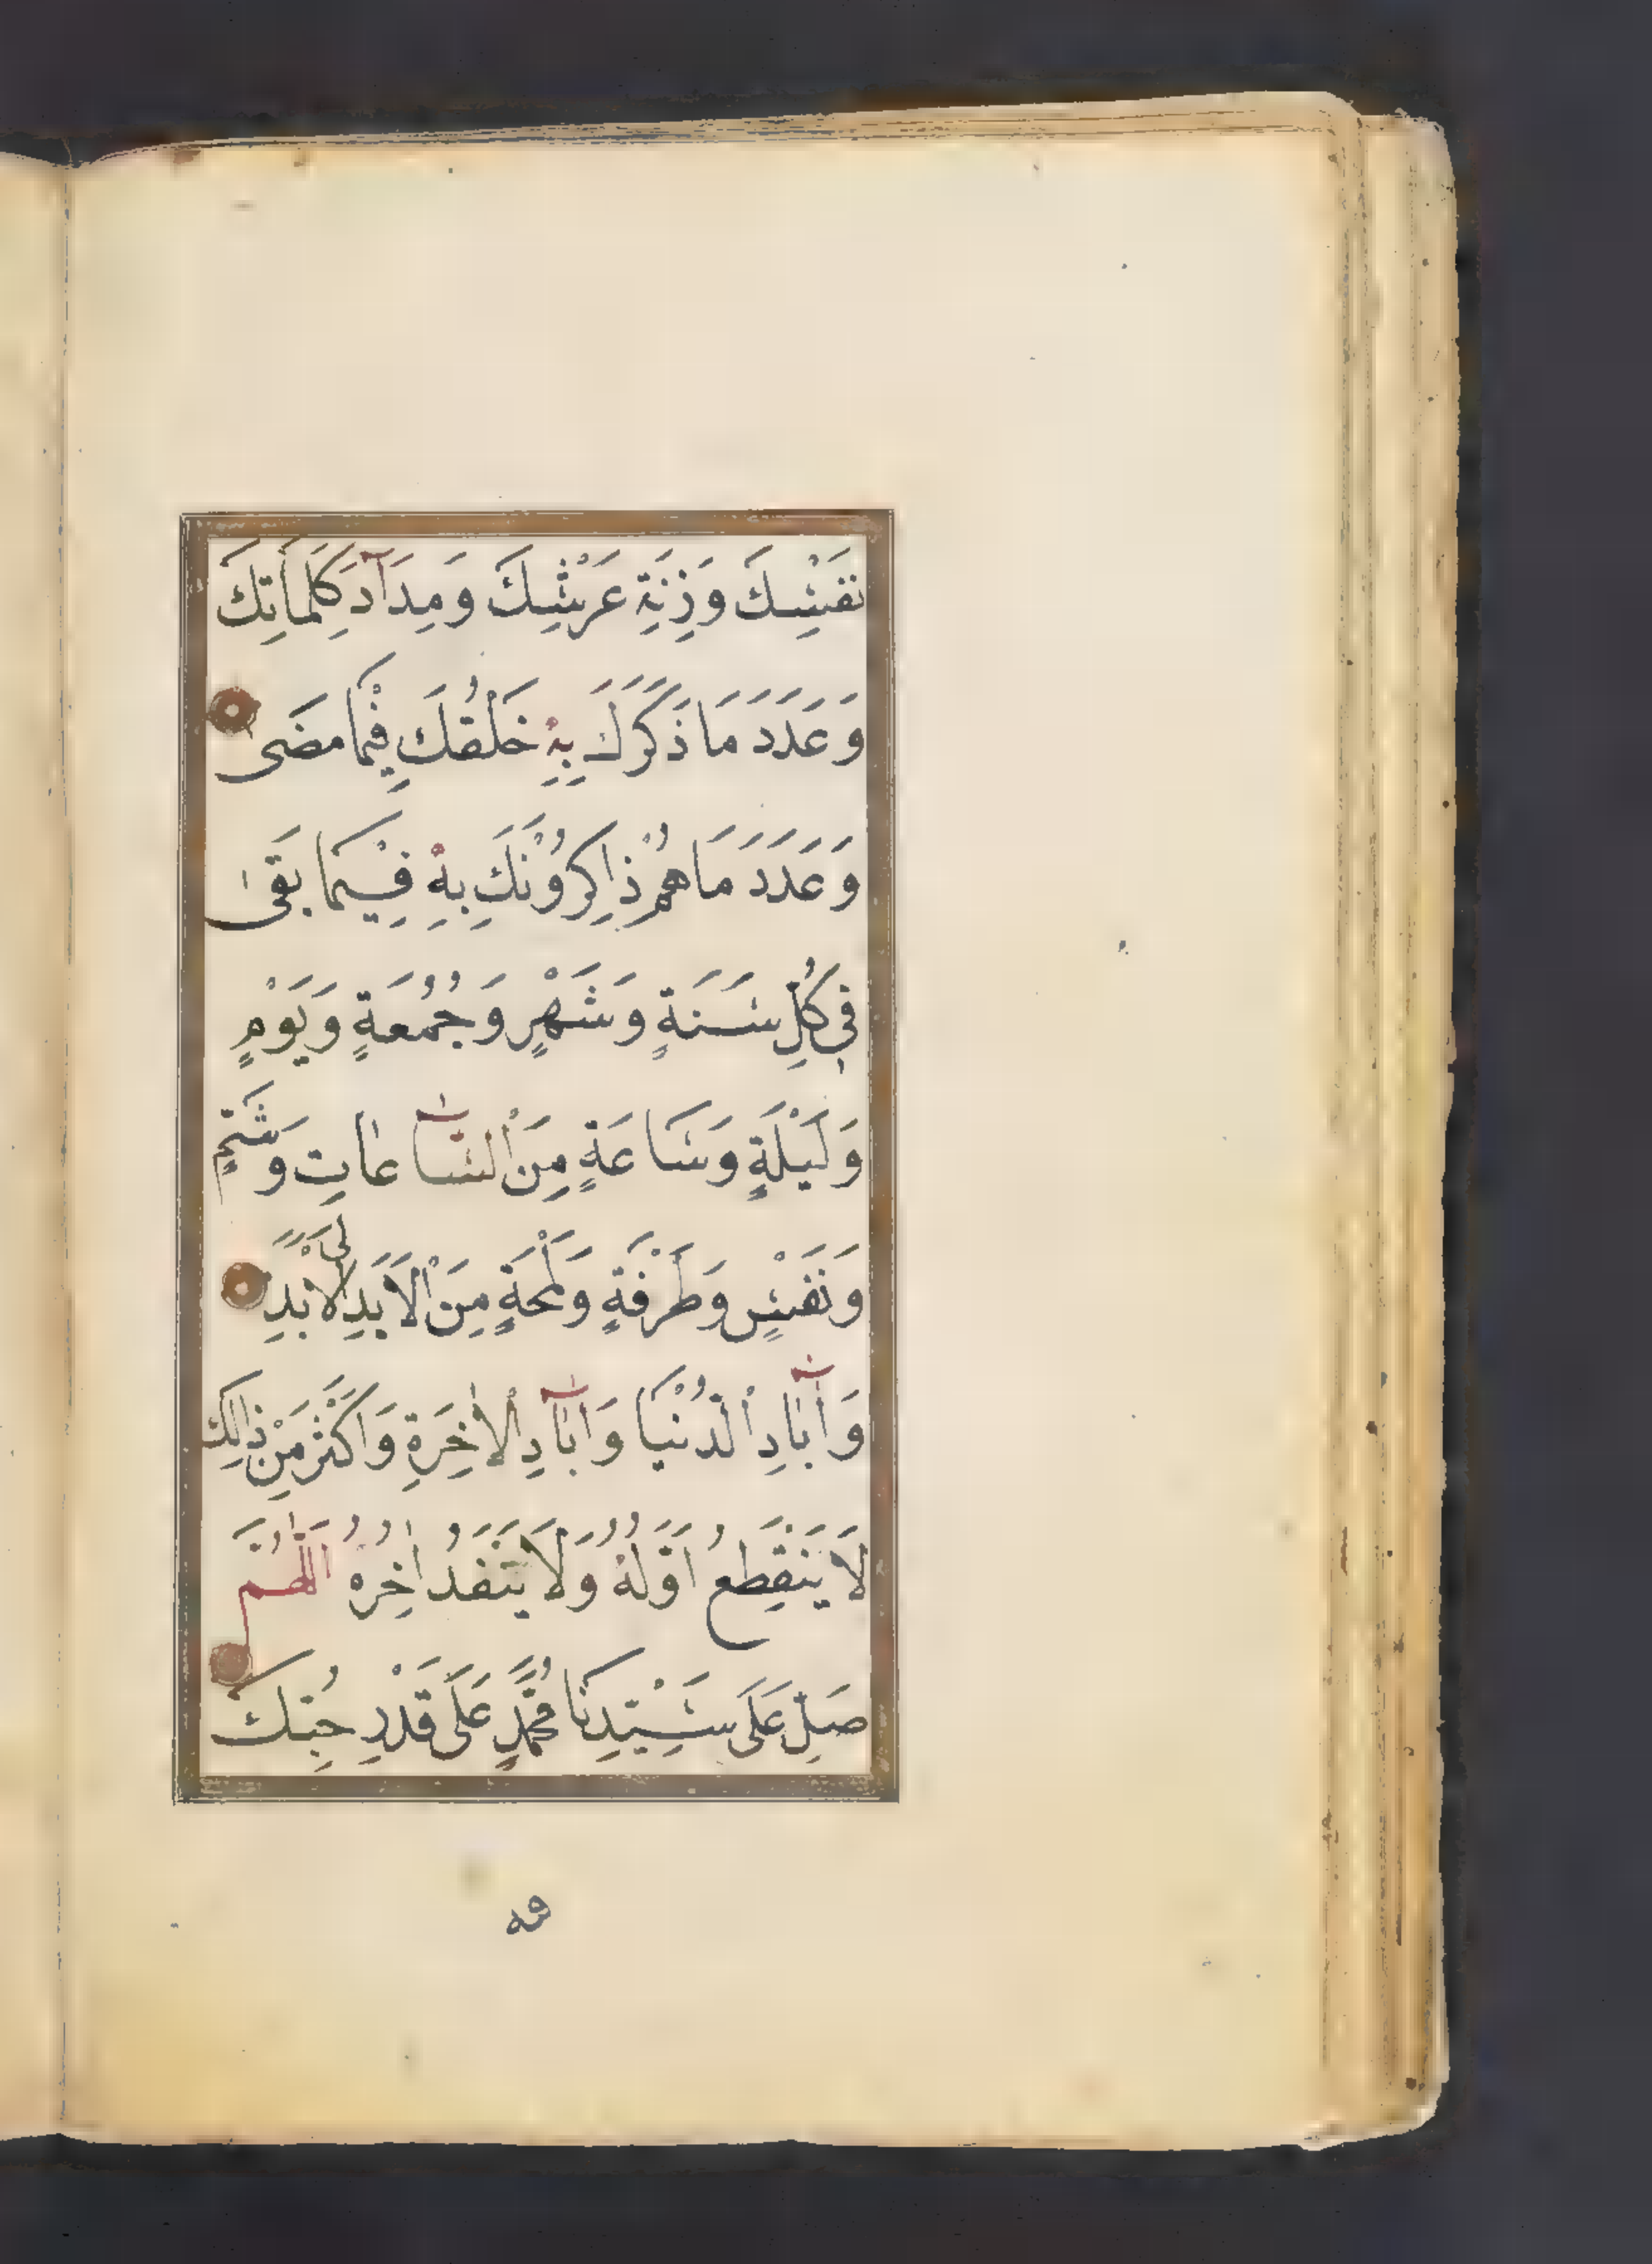 نَفْسِكَ وَزِنَةِ عَرْشِكَ وَمِدَادَ كَلِمَاتِكَ
وَعَدَدَ مَا ذَكَرَكَ بِهِ خَلْقُكَ فِيْمَا مَضَى
وَعَدَدَ مَا هُمْ ذَاكِرُوْنَكَ بِهِ فِيْمَا بَقَى
فِي كُلِّ سَنَةٍ وَشَهْرٍ وَجُمُعَةٍ وَيَوْمٍ
وَلَيْلَةٍ وَسَاعَةٍ مِنَ السَّاعَاتِ وَشَمٍّ
وَنَفَسٍ وَطَرْفَةٍ وَلَمْحَةٍ مِنَ الْأَبَدِ إِلَى الْأَبَدِ
وَآبَادِ الدُّنْيَا وَآبَادِ الْاٰخِرَةِ وَاَكْثَرَ مِنْ ذٰلِكَ
لَا يَنْقَطِعُ اَوَّلُهُ وَلَا يَنْفَدُ اٰخِرُهُ اَللّٰهُمَّ
صَلِّ عَلَى سَيِّدِنَا مُحَمَّدٍ عَلَى قَدْرِ حُبِّكَ
فيه